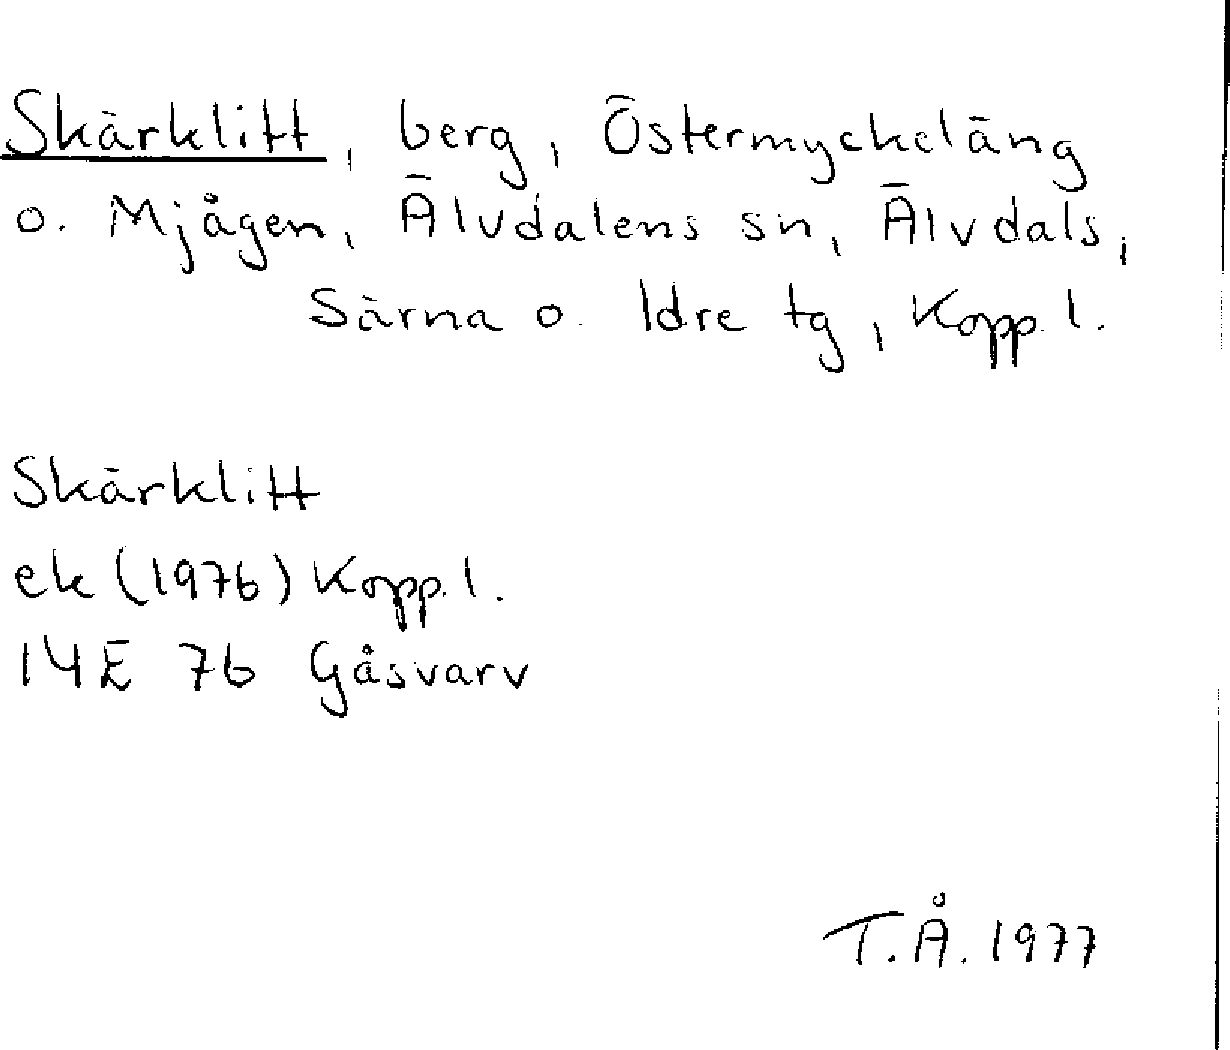 Skärklitt, berg, Östermyckeläng
o. Mjågen, Älvdalens sn, Älvdals,
Särna o. Idre tg, Kopp. l.
Skärklitt
ek (1976) Kopp. l.
14E 7b Gåsvarv
T.Å. 1977